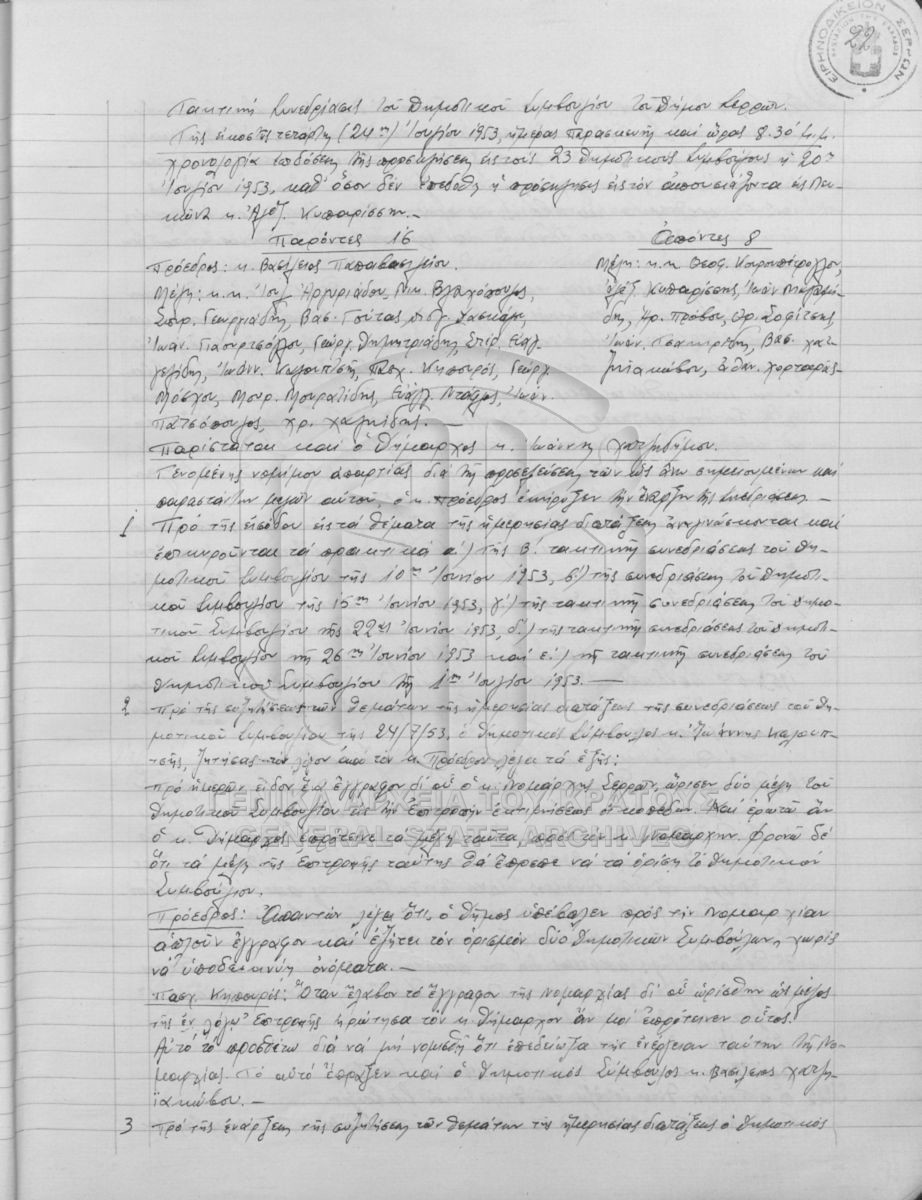 ΕΙΡΗΝΟΔΙΚΕΙΟΝ ΣΕΡΡΩΝ
22
Τακτική Συνεδρίασις τοῦ Δημοτικοῦ Συμβουλίου τοῦ Δήμου Σερρῶν.
Τῆς εἰκοστῆς τετάρτης (24ης) Ἰουλίου 1953, ἡμέρας Παρασκευῆς καὶ ὥρας 8.30
χρονολογία ἐπιδόσεως τῆς προσκλήσεως εἰς τοὺς 23 Δημοτικοὺς Συμβούλους ἡ 20η
Ἰουλίου 1953, καθ' ὅσον δὲν ἐπεδόθη ἡ πρόσκλησις εἰς τὸν ἀπουσιάζοντα εἰς
κ. Ἀλέξ. Κυπαρίσσην.-
Παρόντες 16
Πρόεδρος: κ. Βασίλειος Παπαβασιλείου.
Μέλη: κ.κ. Ἰουλ. Ἀργυριάδου, Νικ. Βλαχόπουλος,
Σωτ. Γεωργιάδης, Βασ. Γούτας,
Ἰωάν. Γιαουρτσόγλου, Γεώργ. Δημητριάδης, Σπυρ. Εὐαγ-
γελίδης, Ἰωάνν. Καλούπτσης, Πασχ. Κηπουρός, Γεώργ.
Μόσχου, Μουρ. Μουρατίδης, Εὐάγγ. Ἰωάν.
Πατσόπουλος, Χρ. Χαλκίδης.-
Ἀπόντες 8
Μέλη: κ.κ. Θεοφ.
Ἀλέξ. Κυπαρίσσης, Ἰωάν.
δης, Πρόβου, Σοφίτσης,
Ἰωάν. Βασ. Χατ-
ζηιακώβου, Ἀθαν.
Παρίσταται καὶ ὁ Δήμαρχος κ. Ἰωάννης Χατζηδήμου.
Γενομένης νομίμου ἀπαρτίας διὰ τῆς προσελεύσεως τῶν ὡς ἄνω σημειουμένων καὶ
παραστάντων μελῶν αὐτοῦ, ὁ κ. Πρόεδρος ἐκήρυξεν τὴν ἔναρξιν τῆς συνεδριάσεως.-
1 Πρὸ τῆς εἰσόδου εἰς τὰ θέματα τῆς ἡμερησίας διατάξεως ἀναγινώσκονται καὶ
ἐπικυροῦνται τὰ πρακτικὰ α') τῆς Β' τακτικῆς συνεδριάσεως τοῦ Δη-
μοτικοῦ Συμβουλίου τῆς 10ης Ἰουνίου 1953, β') τῆς συνεδριάσεως τοῦ Δημοτι-
κοῦ Συμβουλίου τῆς 15ης Ἰουνίου 1953, γ') τῆς τακτικῆς συνεδριάσεως τοῦ Δημο-
τικοῦ Συμβουλίου τῆς 22ας Ἰουνίου 1953, δ') τῆς τακτικῆς συνεδριάσεως τοῦ Δημοτι-
κοῦ Συμβουλίου τῆς 26ης Ἰουνίου 1953 καὶ ε') τῆς τακτικῆς συνεδριάσεως τοῦ
Δημοτικοῦ Συμβουλίου τῆς 1ης Ἰουλίου 1953.-
2 Πρὸ τῆς συζητήσεως τῶν θεμάτων τῆς ἡμερησίας διατάξεως τῆς συνεδριάσεως τοῦ Δη-
μοτικοῦ Συμβουλίου τῆς 24/7/53, ὁ Δημοτικὸς Σύμβουλος κ. Ἰωάννης Καλούπ-
τσης, ζητήσας τὸν λόγον ἀπὸ τὸν κ. Πρόεδρον λέγει τὰ ἑξῆς:
Πρὸ ἡμερῶν εἶδον ἓν ἔγγραφον δι' οὗ ὁ κ. Νομάρχης Σερρῶν, ὥρισεν δύο μέλη τοῦ
Δημοτικοῦ Συμβουλίου εἰς τὴν ἐπιτροπὴν ἐκτιμήσεως οἰκοπέδων. Καὶ ἐρωτῶ ἂν
ὁ κ. Δήμαρχος ἐπρότεινε τὰ μέλη ταῦτα πρὸς τὸν κ. Νομάρχην. Φρονῶ δὲ
ὅτι τὰ μέλη τῆς ἐπιτροπῆς ταύτης θὰ ἔπρεπε νὰ τὰ ὁρίσῃ τὸ Δημοτικὸν
Συμβούλιον.
Πρόεδρος: Ἀπαντῶν λέγει ὅτι, ὁ Δῆμος ὑπέβαλεν πρὸς τὴν Νομαρχίαν
ἁπλοῦν ἔγγραφον καὶ ἐζήτει τὸν ὁρισμὸν δύο Δημοτικῶν Συμβούλων, χωρὶς
νὰ ὑποδεικνύῃ ὀνόματα.-
Πασχ. Κηπουρός: Ὅταν ἔλαβον τὸ ἔγγραφον τῆς Νομαρχίας δι' οὗ ὡρίσθην ὡς μέλος
τῆς ἐν λόγῳ ἐπιτροπῆς ἠρώτησα τὸν κ. Δήμαρχον ἂν μοὶ ἐπρότεινεν οὗτος.
Αὐτὸ τὸ προσθέτω διὰ νὰ μὴ νομισθῇ ὅτι ἐπεδίωξα τὴν ἐνέργειαν ταύτην τῆς Νο-
μαρχίας. Τὸ αὐτὸ ἔπραξεν καὶ ὁ Δημοτικὸς Σύμβουλος κ. Βασίλειος Χατζη-
ϊακώβου.-
3 Πρὸ τῆς ἐνάρξεως τῆς συζητήσεως τῶν θεμάτων τῆς ἡμερησίας διατάξεως ὁ Δημοτικὸς
ΓΕΝΙΚΑ ΑΡΧΕΙΑ ΤΟΥ ΚΡΑΤΟΥΣ
GENERAL STATE ARCHIVES